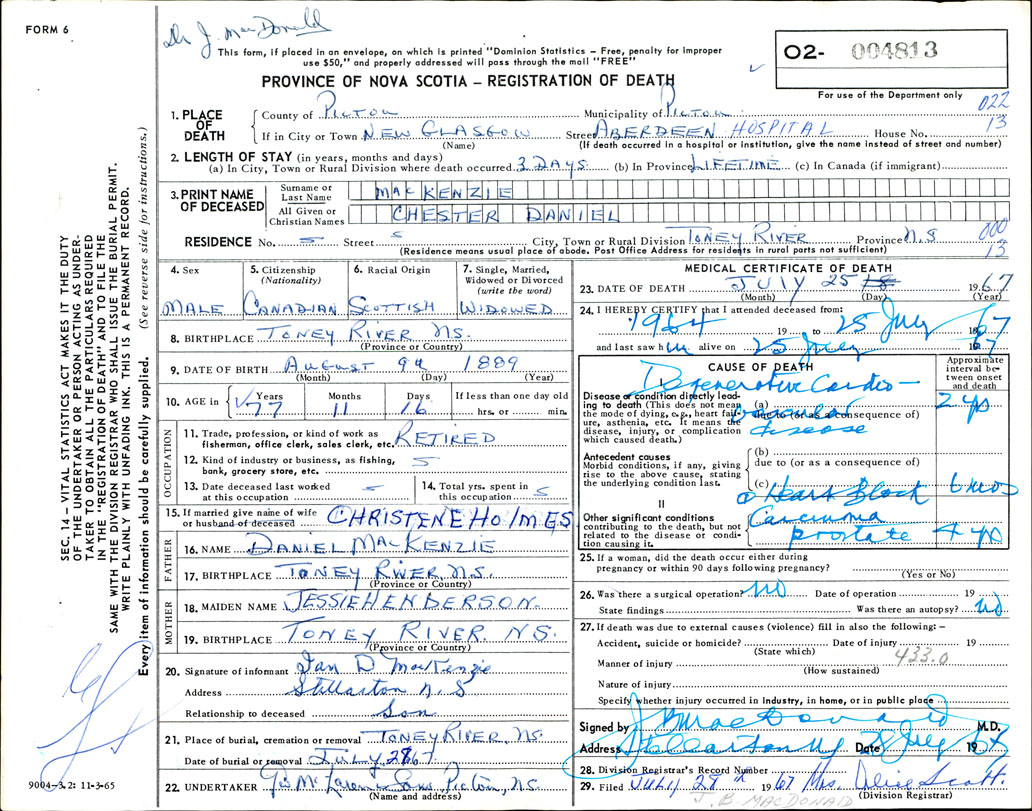 FORM 6
Dr J. MacDonald
This form, if placed in an envelope, on which is printed "Dominion Statistics – Free, penalty for improper
use $50," and properly addressed will pass through the mail "FREE"
PROVINCE OF NOVA SCOTIA – REGISTRATION OF DEATH
O2- 004813
For use of the Department only
022
13
1. PLACE OF DEATH
County of PICTOU Municipality of PICTOU
If in City or Town NEW GLASGOW Street ABERDEEN HOSPITAL House No.
(Name) (If death occurred in a hospital or institution, give the name instead of street and number)
2. LENGTH OF STAY (in years, months and days)
(a) In City, Town or Rural Division where death occurred 3 DAYS (b) In Province LIFETIME (c) In Canada (if immigrant)
3. PRINT NAME OF DECEASED
Surname or Last Name MACKENZIE
All Given or Christian Names CHESTER DANIEL
RESIDENCE No. Street City, Town or Rural Division TONEY RIVER Province N.S
000
13
(Residence means usual place of abode. Post Office Address for residents in rural parts not sufficient)
4. Sex
MALE
5. Citizenship (Nationality)
CANADIAN
6. Racial Origin
SCOTTISH
7. Single, Married, Widowed or Divorced (write the word)
WIDOWED
8. BIRTHPLACE TONEY RIVER NS.
(Province or Country)
9. DATE OF BIRTH AUGUST 9th 1889
(Month) (Day) (Year)
10. AGE in Years 77 Months 11 Days 16 If less than one day old hrs. or min.
OCCUPATION
11. Trade, profession, or kind of work as
fisherman, office clerk, sales clerk, etc. RETIRED
12. Kind of industry or business, as fishing,
bank, grocery store, etc.
13. Date deceased last worked
at this occupation
14. Total yrs. spent in
this occupation
15. If married give name of wife
or husband of deceased CHRISTENE HOLMES
FATHER
16. NAME DANIEL MACKENZIE
17. BIRTHPLACE TONEY RIVER N.S.
(Province or Country)
MOTHER
18. MAIDEN NAME JESSIE HENDERSON.
19. BIRTHPLACE TONEY RIVER. NS.
(Province or Country)
20. Signature of informant Ian D. MacKenzie
Address Stellarton N.S
Relationship to deceased Son.
21. Place of burial, cremation or removal TONEY RIVER, NS.
Date of burial or removal July 28 67
22. UNDERTAKER McLaren & Sons Pictou, NS.
(Name and address)
MEDICAL CERTIFICATE OF DEATH
23. DATE OF DEATH JULY 25 1967
(Month) (Day) (Year)
24. I HEREBY CERTIFY that I attended deceased from:
1964 19 to 25 July 1967
and last saw him alive on 25 July 1967
CAUSE OF DEATH
Approximate interval between onset and death
I
Disease or condition directly leading to death (This does not mean the mode of dying, e.g., heart failure, asthenia, etc. It means the disease, injury, or complication which caused death.)
(a) Degenerative Cardio-vascular disease 2 yrs
due to (or as a consequence of)
Antecedent causes
Morbid conditions, if any, giving rise to the above cause, stating the underlying condition last.
(b)
due to (or as a consequence of)
(c)
Heart Block 6 mos
II
Other significant conditions
contributing to the death, but not related to the disease or condition causing it.
Carcinoma
prostate 4 yrs
25. If a woman, did the death occur either during
pregnancy or within 90 days following pregnancy?
(Yes or No)
26. Was there a surgical operation? NO Date of operation 19
State findings Was there an autopsy? NO
27. If death was due to external causes (violence) fill in also the following: –
Accident, suicide or homicide? Date of injury 19
(State which) 433.0
Manner of injury
(How sustained)
Nature of injury
Specify whether injury occurred in industry, in home, or in public place
Signed by J B MacDonald M.D.
Address Stellarton NS Date 28 July 1967
28. Division Registrar's Record Number
29. Filed July 28th 1967 Mrs. Alice Scott.
(Division Registrar)
J. B MACDONALD
SEC. 14 – VITAL STATISTICS ACT MAKES IT THE DUTY
OF THE UNDERTAKER OR PERSON ACTING AS UNDER-
TAKER TO OBTAIN ALL THE PARTICULARS REQUIRED
IN THE "REGISTRATION OF DEATH" AND TO FILE THE
SAME WITH THE DIVISION REGISTRAR WHO SHALL ISSUE THE BURIAL PERMIT.
WRITE PLAINLY WITH UNFADING INK. THIS IS A PERMANENT RECORD.
Every item of information should be carefully supplied. (See reverse side for instructions.)
9004-3.2: 11-3-65